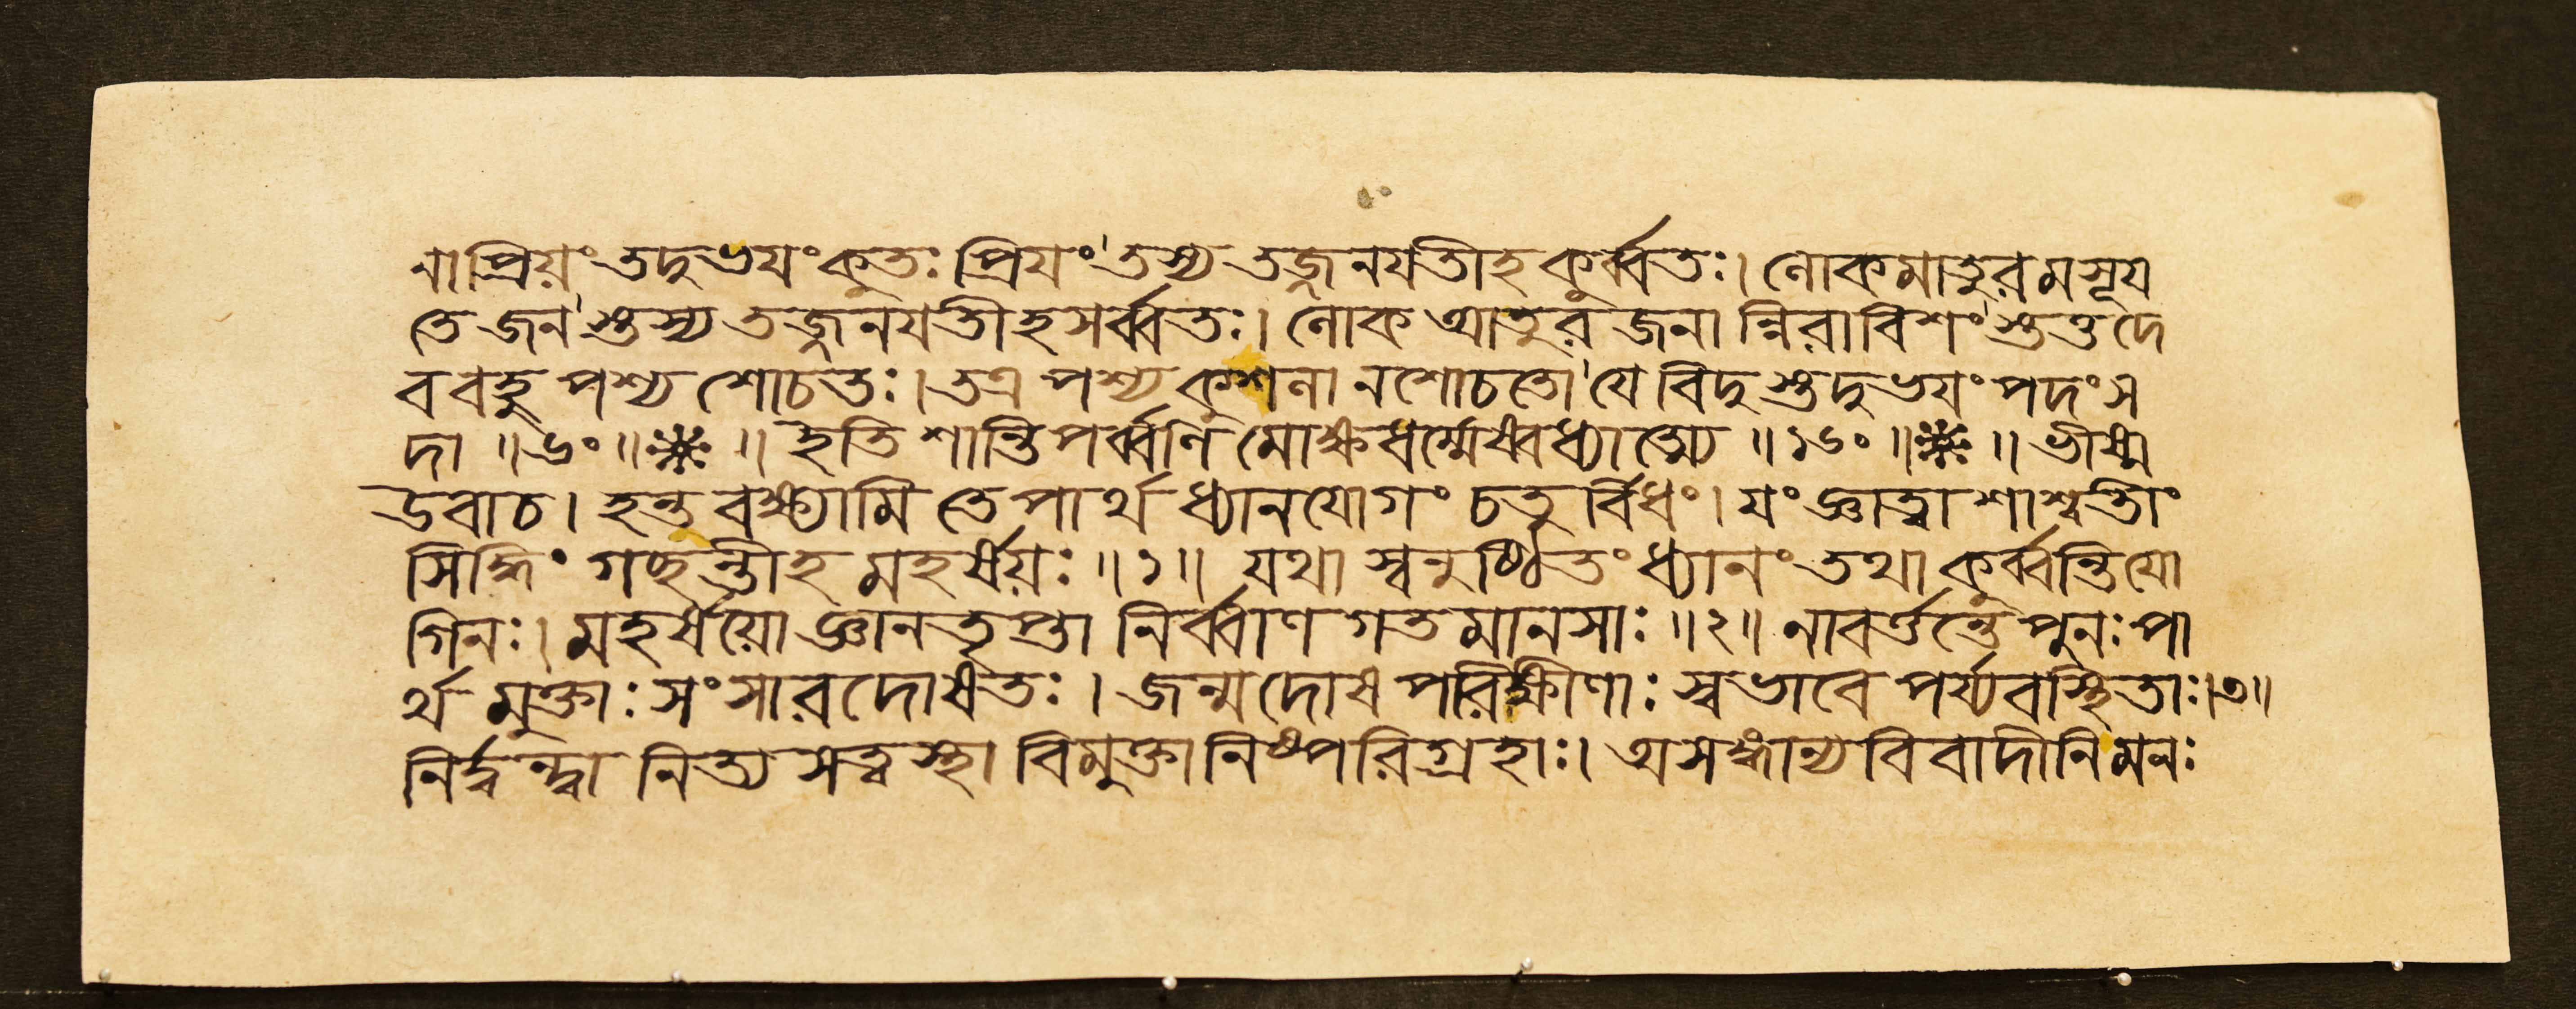 নাপ্রিয়ং তদুভযং কুতঃ প্রিযং তস্য তজ্জনযতীহ কুর্ব্বতঃ। লোকমাতুরমসূয
তে জনস্তস্য তজ্জনযতীহ সর্ব্বতঃ। লোক আতুর জনান্নিরাবিশংস্তত্তদে
ব বহু পশ্য শোচতঃ। তত্র পশ্য কুশলানশোচতো যে বিদুস্তদুভযং পদং স
দা ॥৬০॥ ❋ ॥ ইতি শান্তিপর্ব্বণি মোক্ষধর্ম্মেষ্বধ্যাত্ম্যে ॥১৬০॥ ❋ ॥ ভীষ্ম
উবাচ। হন্ত বক্ষ্যামি তে পার্থ ধ্যানযোগং চতুর্বিধং। যং জ্ঞাত্বা শাশ্বতীং
সিদ্ধিং গচ্ছন্তীহ মহর্ষয়ঃ ॥১॥ যথা স্বনুষ্ঠিতং ধ্যানং তথা কুর্ব্বন্তি যো
গিনঃ। মহর্ষয়ো জ্ঞানতৃপ্তা নির্ব্বাণগতমানসাঃ ॥২॥ নাবর্ত্তন্তে পুনঃ পা
র্থ মুক্তাঃ সংসারদোষতঃ। জন্মদোষপরিক্ষীণাঃ স্বভাবে পর্য্যবস্থিতাঃ।৩॥
নির্দ্বন্দ্বা নিত্যসত্বস্থা বিমুক্তা নিষ্পরিগ্রহাঃ। অসঙ্গান্যবিবাদীনি মনঃ